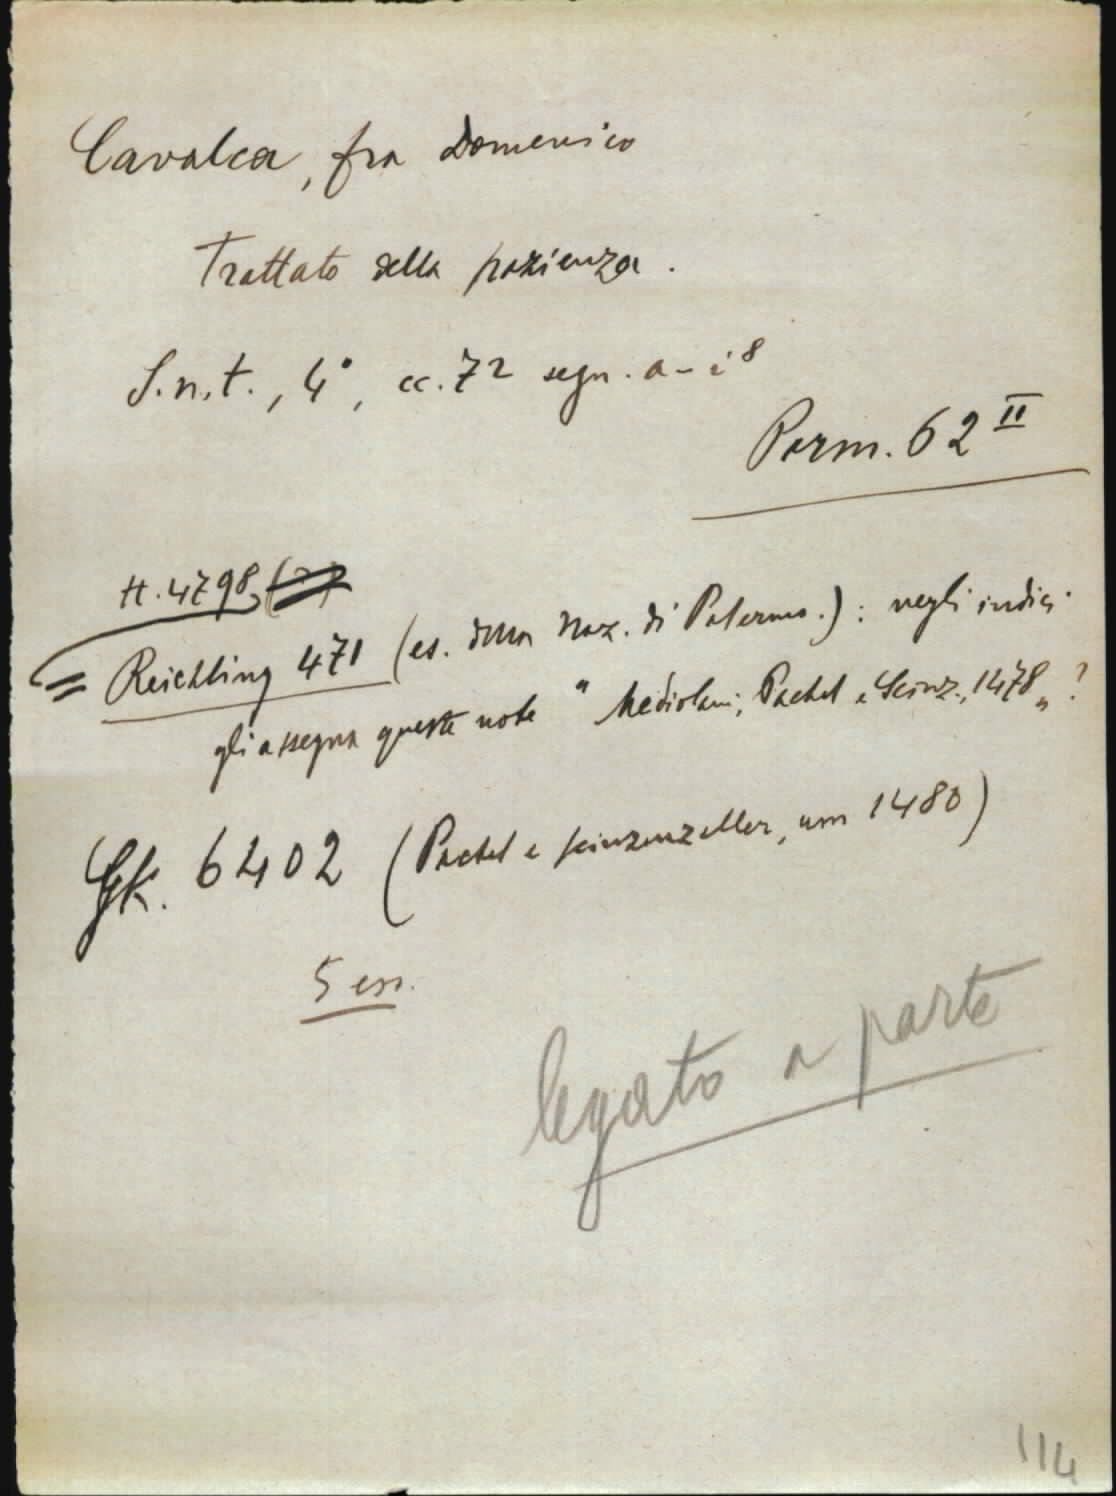 Cavalca, fra Domenico
Trattato della pazienza.
S.n.t., 4°, cc. 72 segn. a-i⁸
Parm. 62 II
H. 4798 (?)
= Reichling 471 (es. della Naz. di Palermo.): negli indici
gli assegna queste note "Mediolani, Pachel e Scinz., 1478„?
GK. 6402 (Pachel e Scinzenzeller, um 1480)
5 ess.
legato a parte
114